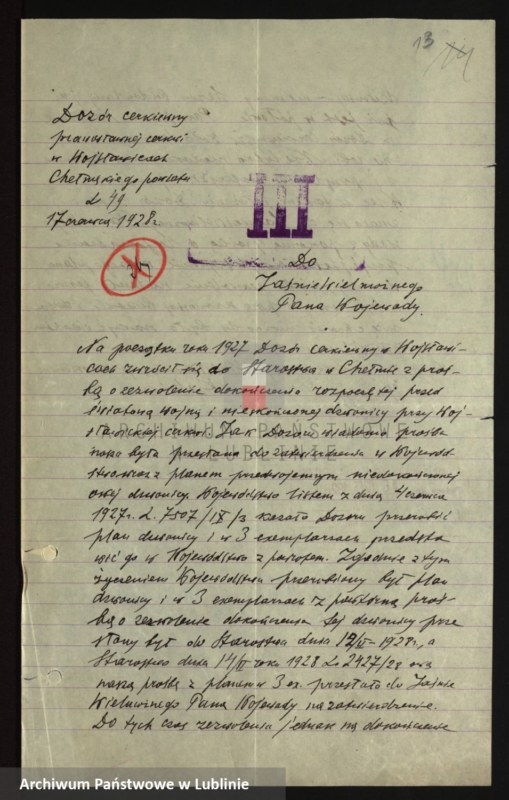 13 14
Dozór cerkiewny
prawosławnej cerkwi
w Wojsławicach
Chełmskiego powiatu
L 49
17 czerwca 1928 r.
III
Do
Jaśnie Wielmożnego
Pana Wojewody.
Na początku roku 1927 Dozór cerkiewny w Wojsławi-
cach zwrócił się do Starostwa w Chełmie z proś-
bą o zezwolenie dokończenia rozpoczętej przed
światową wojną i niedokończonej dzwonicy przy Woj-
sławickiej cerkwi. Jak Dozorowi wiadomo prośba
nasza była przesłana do zatwierdzenia w Wojewódz-
stwo wraz z planem przedwojennym niedokończonej
owej dzwonicy. Województwo listem z dnia 4 czerwca
1927 r. L. 7507/IX/3 kazało Dozoru przerobić
plan dzwonicy i w 3 exemplarzach przedsta-
wić go w Województwo z powrotem. Zgodnie z tym
życzeniem Województwa przerobiony był plan
dzwonicy i w 3 exemplarzach z powtórną proś-
bą o zezwolenie dokończenia tej dzwonicy prze-
słany był do Starostwa dnia 12/II-1928 r., a
Starostwo dnia 14/II roku 1928 L 2427/28
naszą prośbę z planem w 3 ex. przesłało do Jaśnie
Wielmożnego Pana Wojewody na zatwierdzenie.
Do tych czas zezwolenia jednak na dokończenie
ARCHIWUM PAŃSTWOWE
W LUBLINIE
Archiwum Państwowe w Lublinie